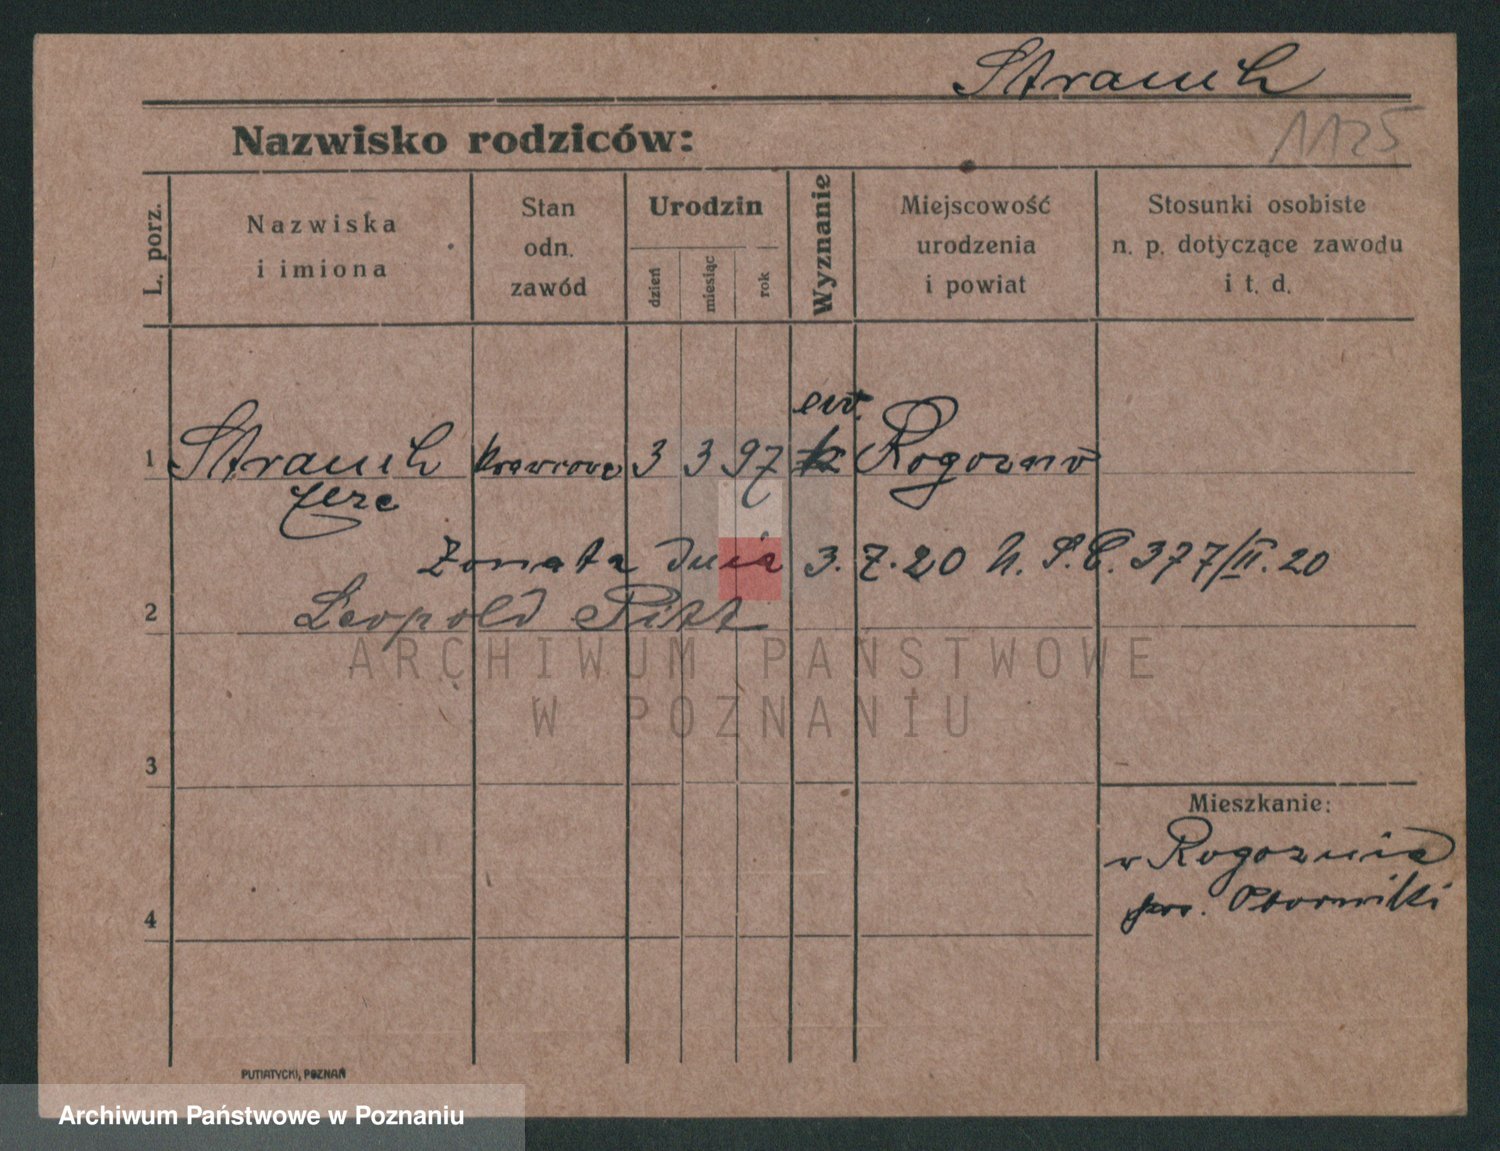 Strauch
1125
Nazwisko rodziców:
L. porz.
Nazwiska
i imiona
Stan
odn.
zawód
Urodzin
dzień
miesiąc
rok
Wyznanie
Miejscowość
urodzenia
i powiat
Stosunki osobiste
n. p. dotyczące zawodu
i t. d.
ew.
1 Strauch krawcowa 3 3 97 Rogoźno
Żonata dnia 3.7.20 N. S.C. 377/II.20
2 Leopold Pitt
ARCHIWUM PAŃSTWOWE
W POZNANIU
3
Mieszkanie:
w Rogoźnie
pow. Oborniki
4
PUTIATYCKI, POZNAŃ
Archiwum Państwowe w Poznaniu